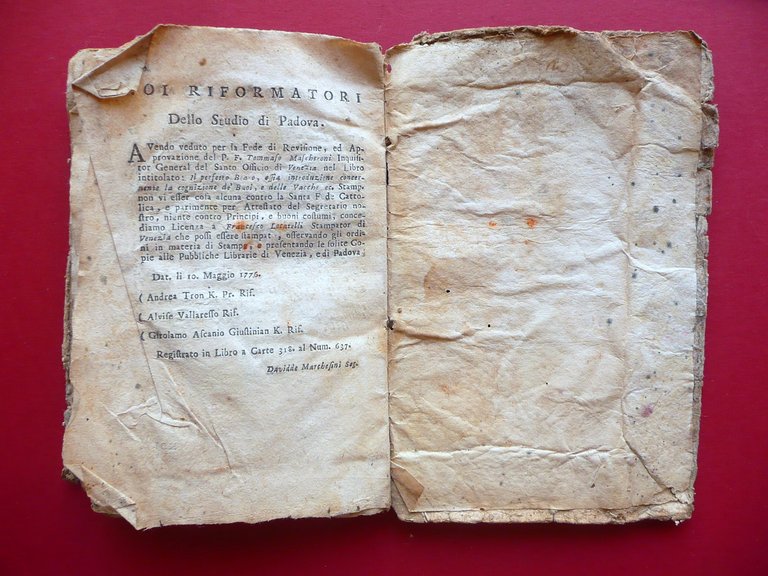 OI RIFORMATORI
Dello Studio di Padova.
AVendo veduto per la Fede di Revisione, ed Ap-
provazione del P. F. Tommaso Mascheroni Inquisi-
tor General del Santo Officio di Venezia nel Libro
intitolato: Il perfetto Boaro, ossia introduzione concer-
nente la cognizione de' Buoi, e delle Vacche ec. Stamp.
non vi esser cosa alcuna contro la Santa Fede Catto-
lica, e parimente per Attestato del Segretario no-
stro, niente contro Principi, e buoni costumi, conce-
diamo Licenza a Francesco Locatelli Stampator di
Venezia che possi essere stampato, osservando gli ordi-
ni in materia di Stampe, e presentando le solite Co-
pie alle Pubbliche Librarie di Venezia, e di Padova.
Dat. li 10. Maggio 1776.
( Andrea Tron K. Pr. Rif.
( Alvise Vallaresso Rif.
( Girolamo Ascanio Giustinian K. Rif.
Registrato in Libro a Carte 318. al Num. 637.
Davidde Marchesini Seg.